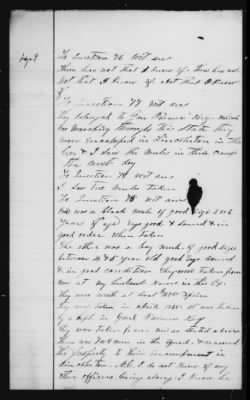 page 9
To Question 76 wit ans
There has not that I know of. There has not
not that I know of. Not that I know
of
To Question 77 wit ans
they belonged to Gen Palmers Brig. which
was Marching through this State they
were encamped in
Co. & I saw the mules in their camp
the next day
To Question 78 wit ans
I saw two mules taken
To Question 78 wit ans
One was a black mule of good size 5 or 6
years of age eyes good & sound & in
good order when taken
The other was a bay mule of good size
between 4 & 5 years old good eyes sound
& in good condition They were taken from
me at my husbands house in this Co.
they was worth at least
they was taken in April 1865 it was taken
by a dept in Genl Palmers Brig
they was taken from me as stated above
There was 3 or 4 men in the squad & removed
the property to their encampment in
I do not know of any
other officers being along. I know the